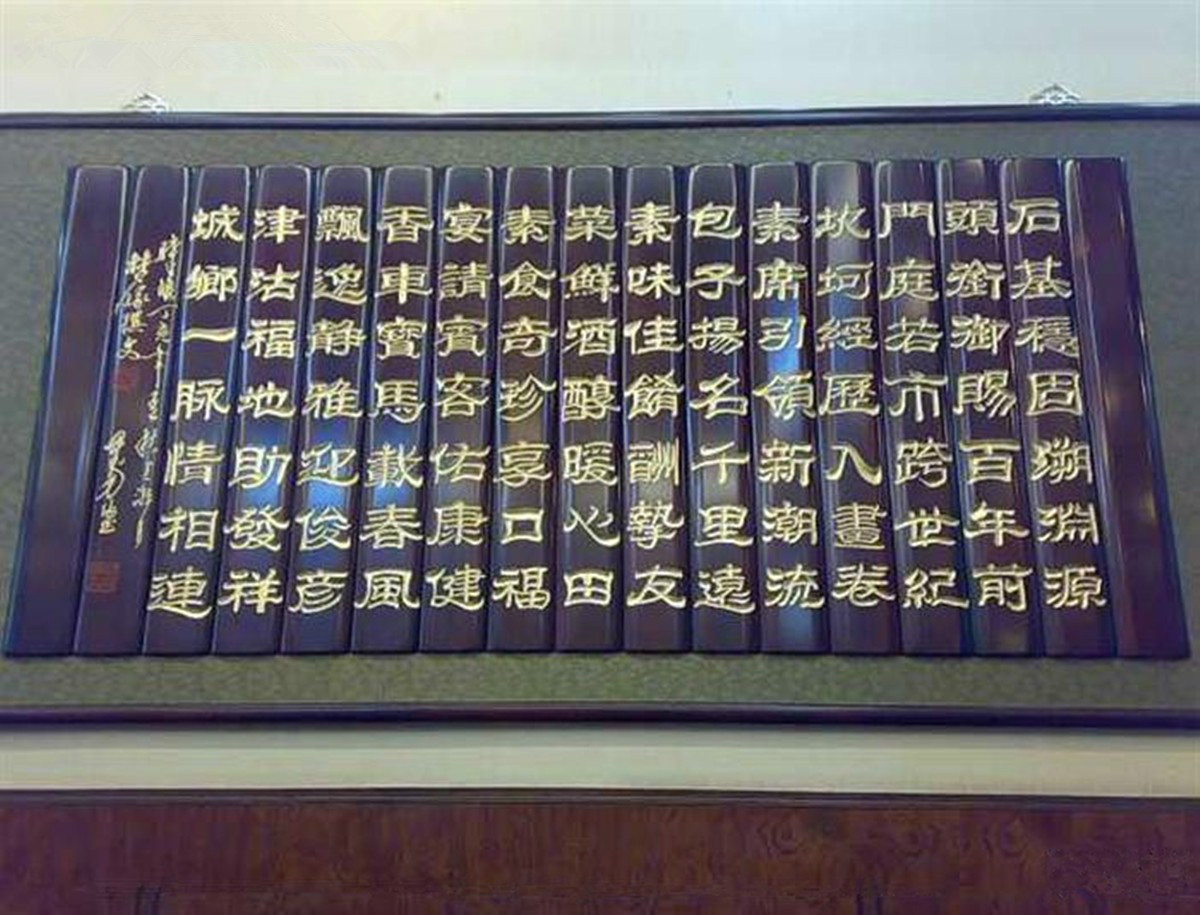 石基穩固溯淵源
頭銜御賜百年前
門庭若市跨世紀
坎坷經歷入畫卷
素席引領新潮流
包子揚名千里遠
素味佳餚酬摯友
菜鮮酒醇暖心田
素食奇珍享口福
宴請賓客佑康健
香車寶馬載春風
飄逸靜雅迎俊彥
津沽福地助發祥
城鄉一脉情相連